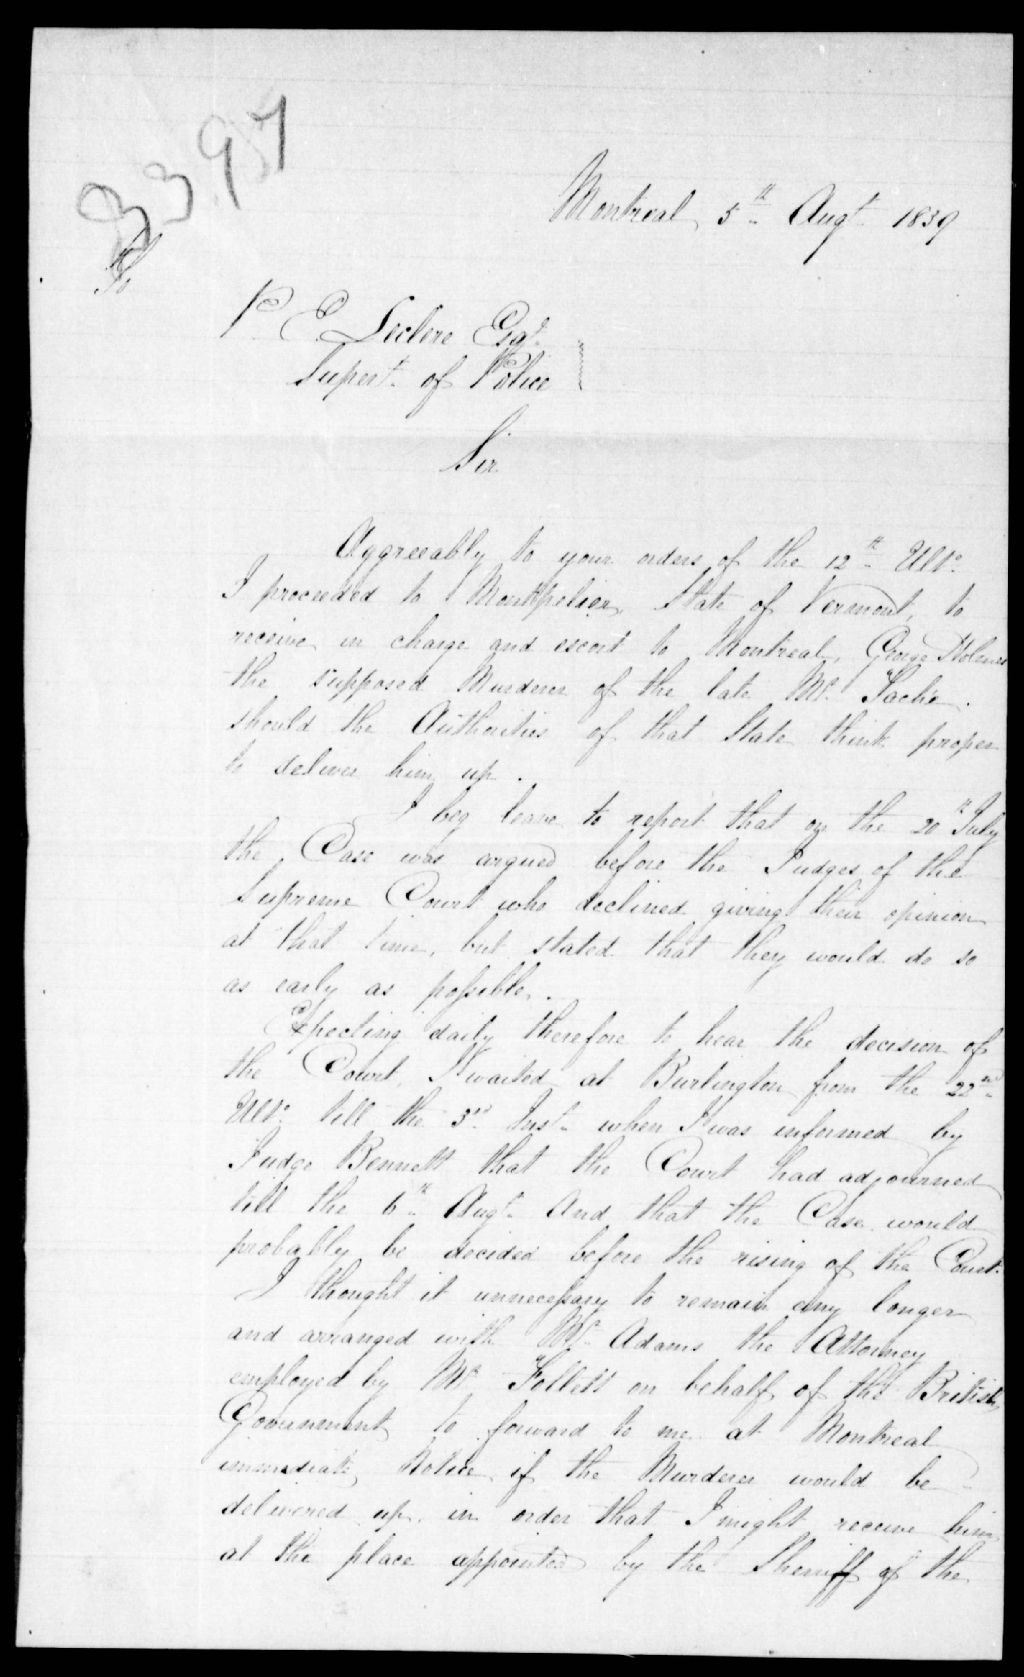 3397
Montreal 5th Augt 1839
To
P. E. Leclere Esqr
Supert. of Police
Sir
Aggreeably to your orders of the 12th Ulto
I proceeded to Montpelier, State of Vermont, to
receive in charge and escort to Montreal, George Holmes
the supposed Murderer of the late Mr. Tache.
should the Authorities of that State think proper
to deliver him up.
I beg leave to report that on the 20th July
the Case was argued before the Judges of the
Supreme Court who declined giving their opinion
at that time, but stated that they would do so
as early as possible.
Expecting daily therefore to hear the decision of
the Court, I waited at Burlington from the 22nd
Ulto till the 3rd Inst. when I was informed by
Judge Bennett that the Court had adjourned
till the 6th Augt. and that the Case would
probably be decided before the rising of the Court.
I thought it unnecessary to remain any longer
and arranged with Mr. Adams the Attorney
employed by Mr. Follett on behalf of the British
Government to forward to me at Montreal
immediate Notice if the Murderer would be
delivered up in order that I might receive him
at the place appointed by the Sherriff of the